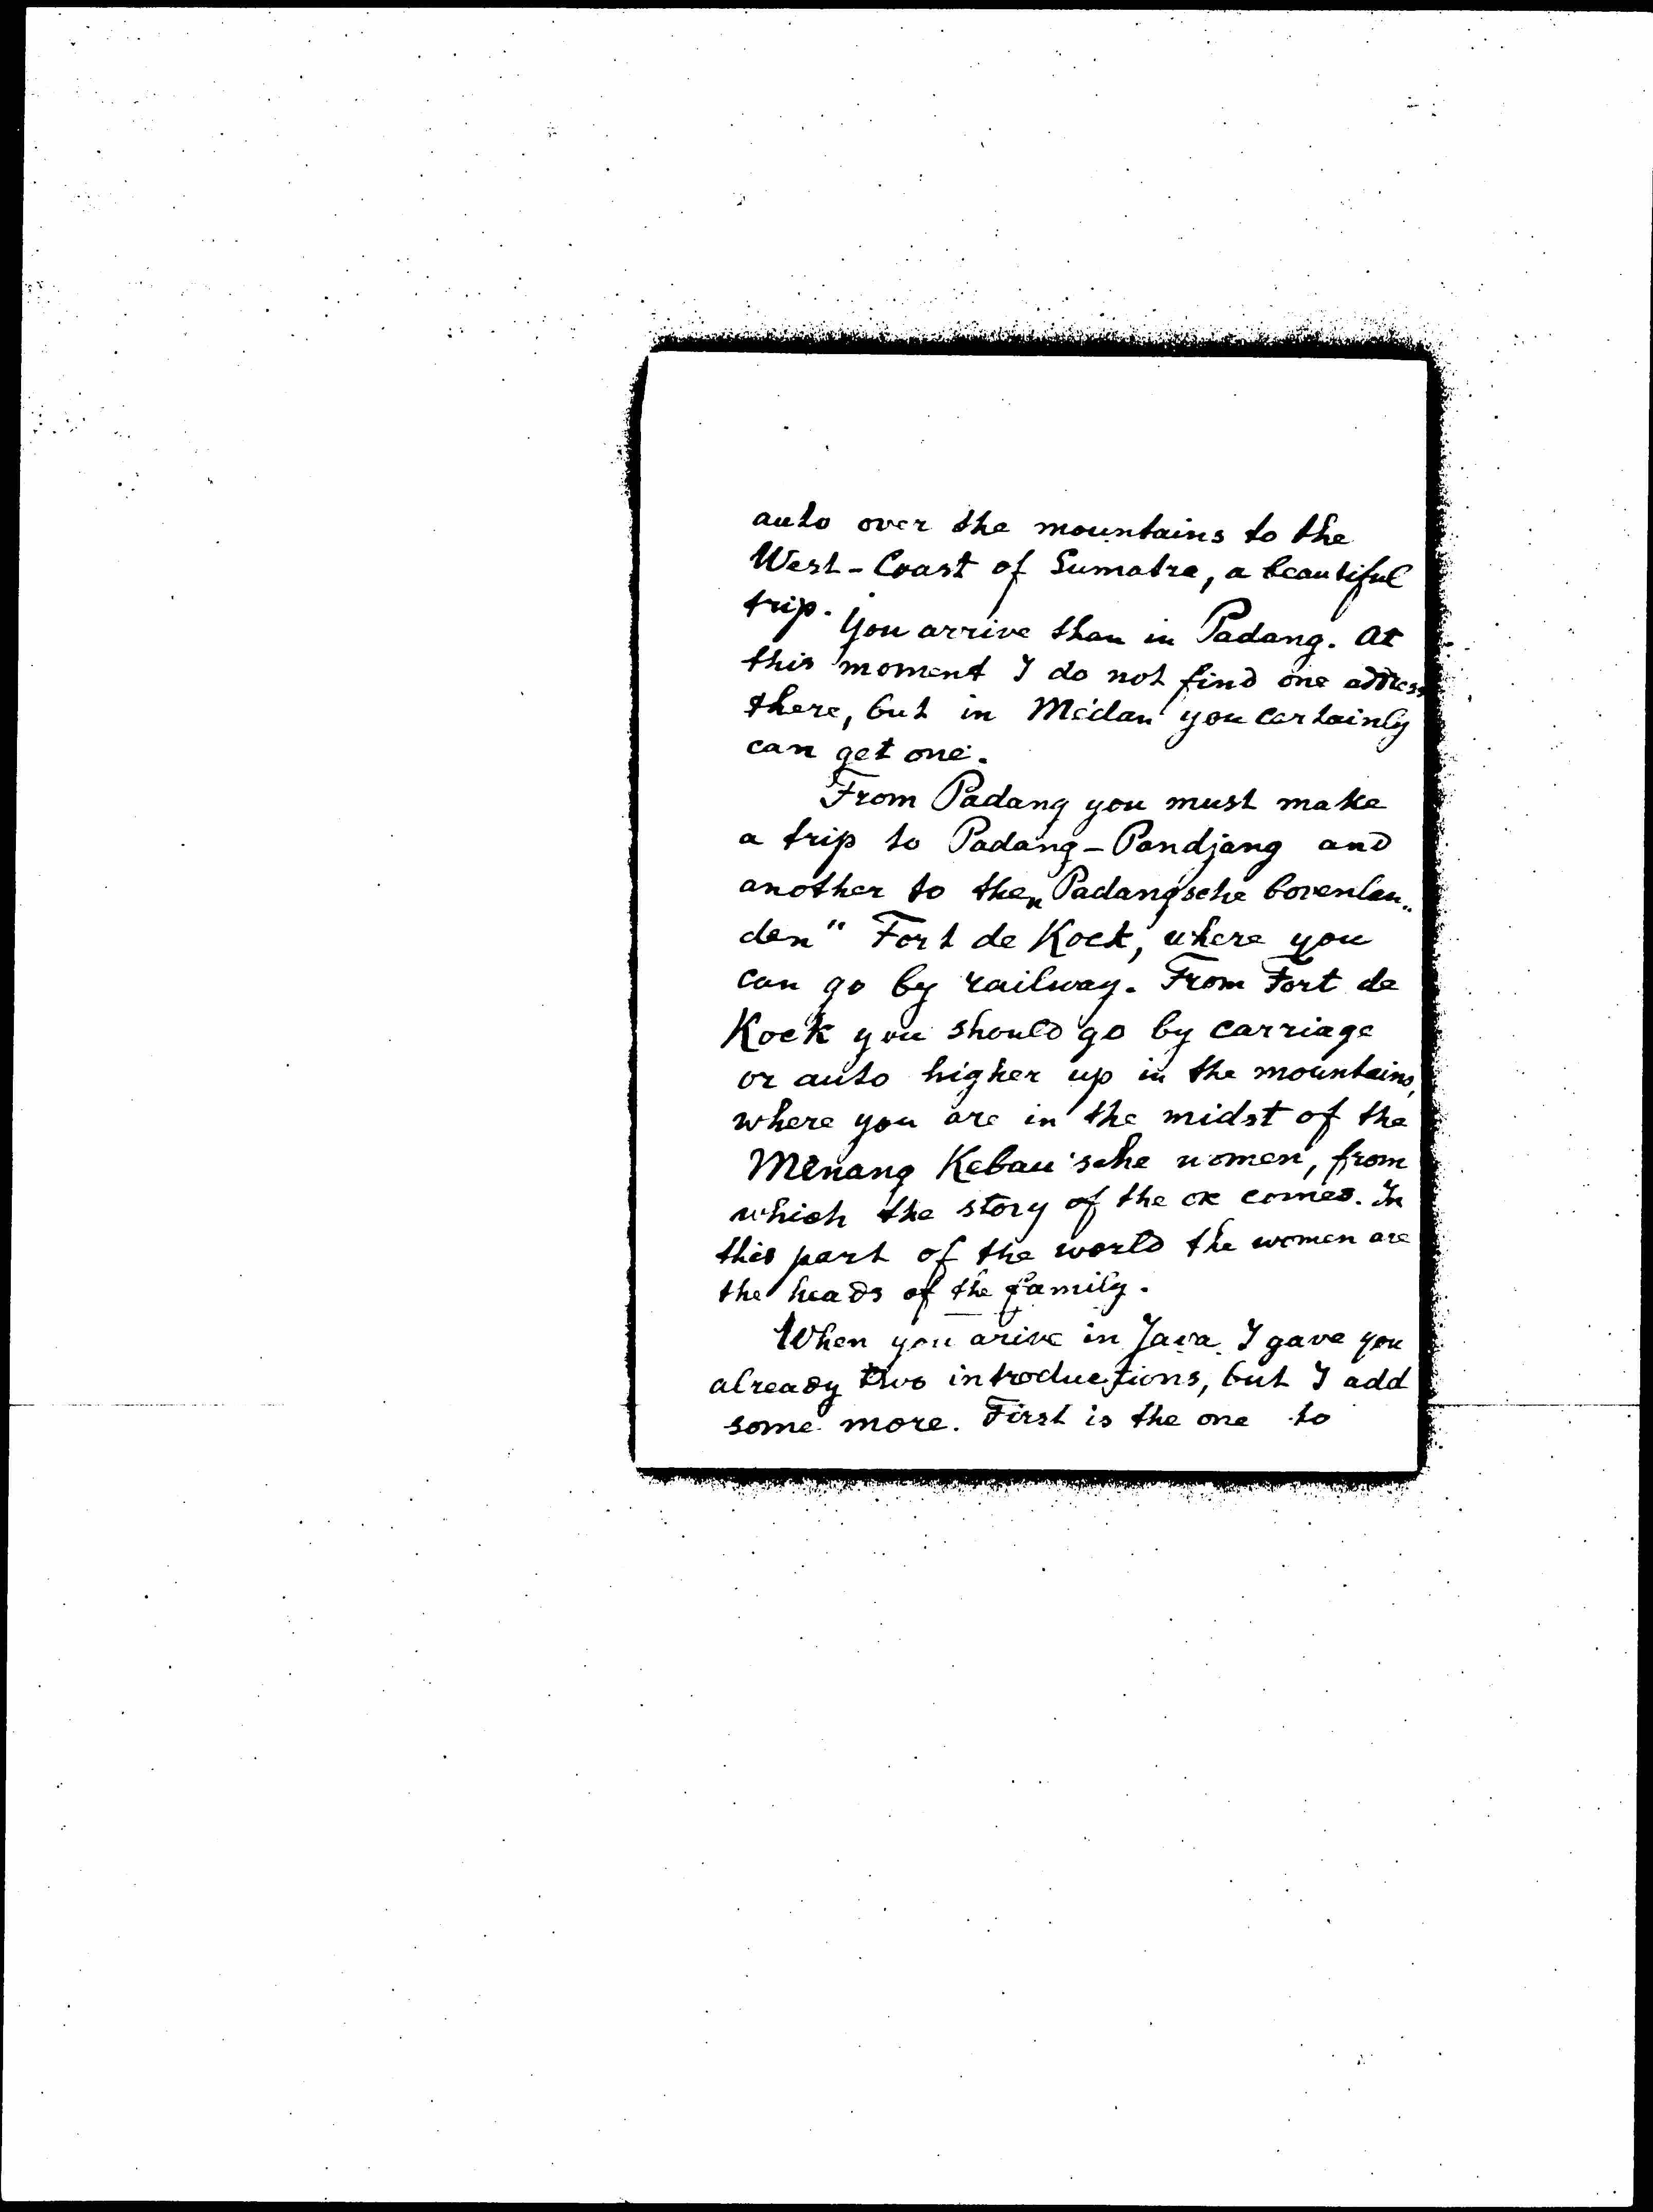 auto over the mountains to the
West-Coast of Sumatra, a beautiful
trip.
You arrive than in Padang. At
this moment I do not find one address
there, but in Medan you certainly
can get one.
From Padang you must make
a trip to Padang-Pandjang and
another to the „Padangsche bovenlan„
den" Fort de Kock, where you
can go by railway. From Fort de
Kock you should go by carriage
or auto higher up in the mountains,
where you are in the midst of the
Menang Kebau'sche women, from
which the story of the ox comes. In
this part of the world the women are
the heads of the family.
When you arive in Java I gave you
already two introductions, but I add
some more. First is the one to